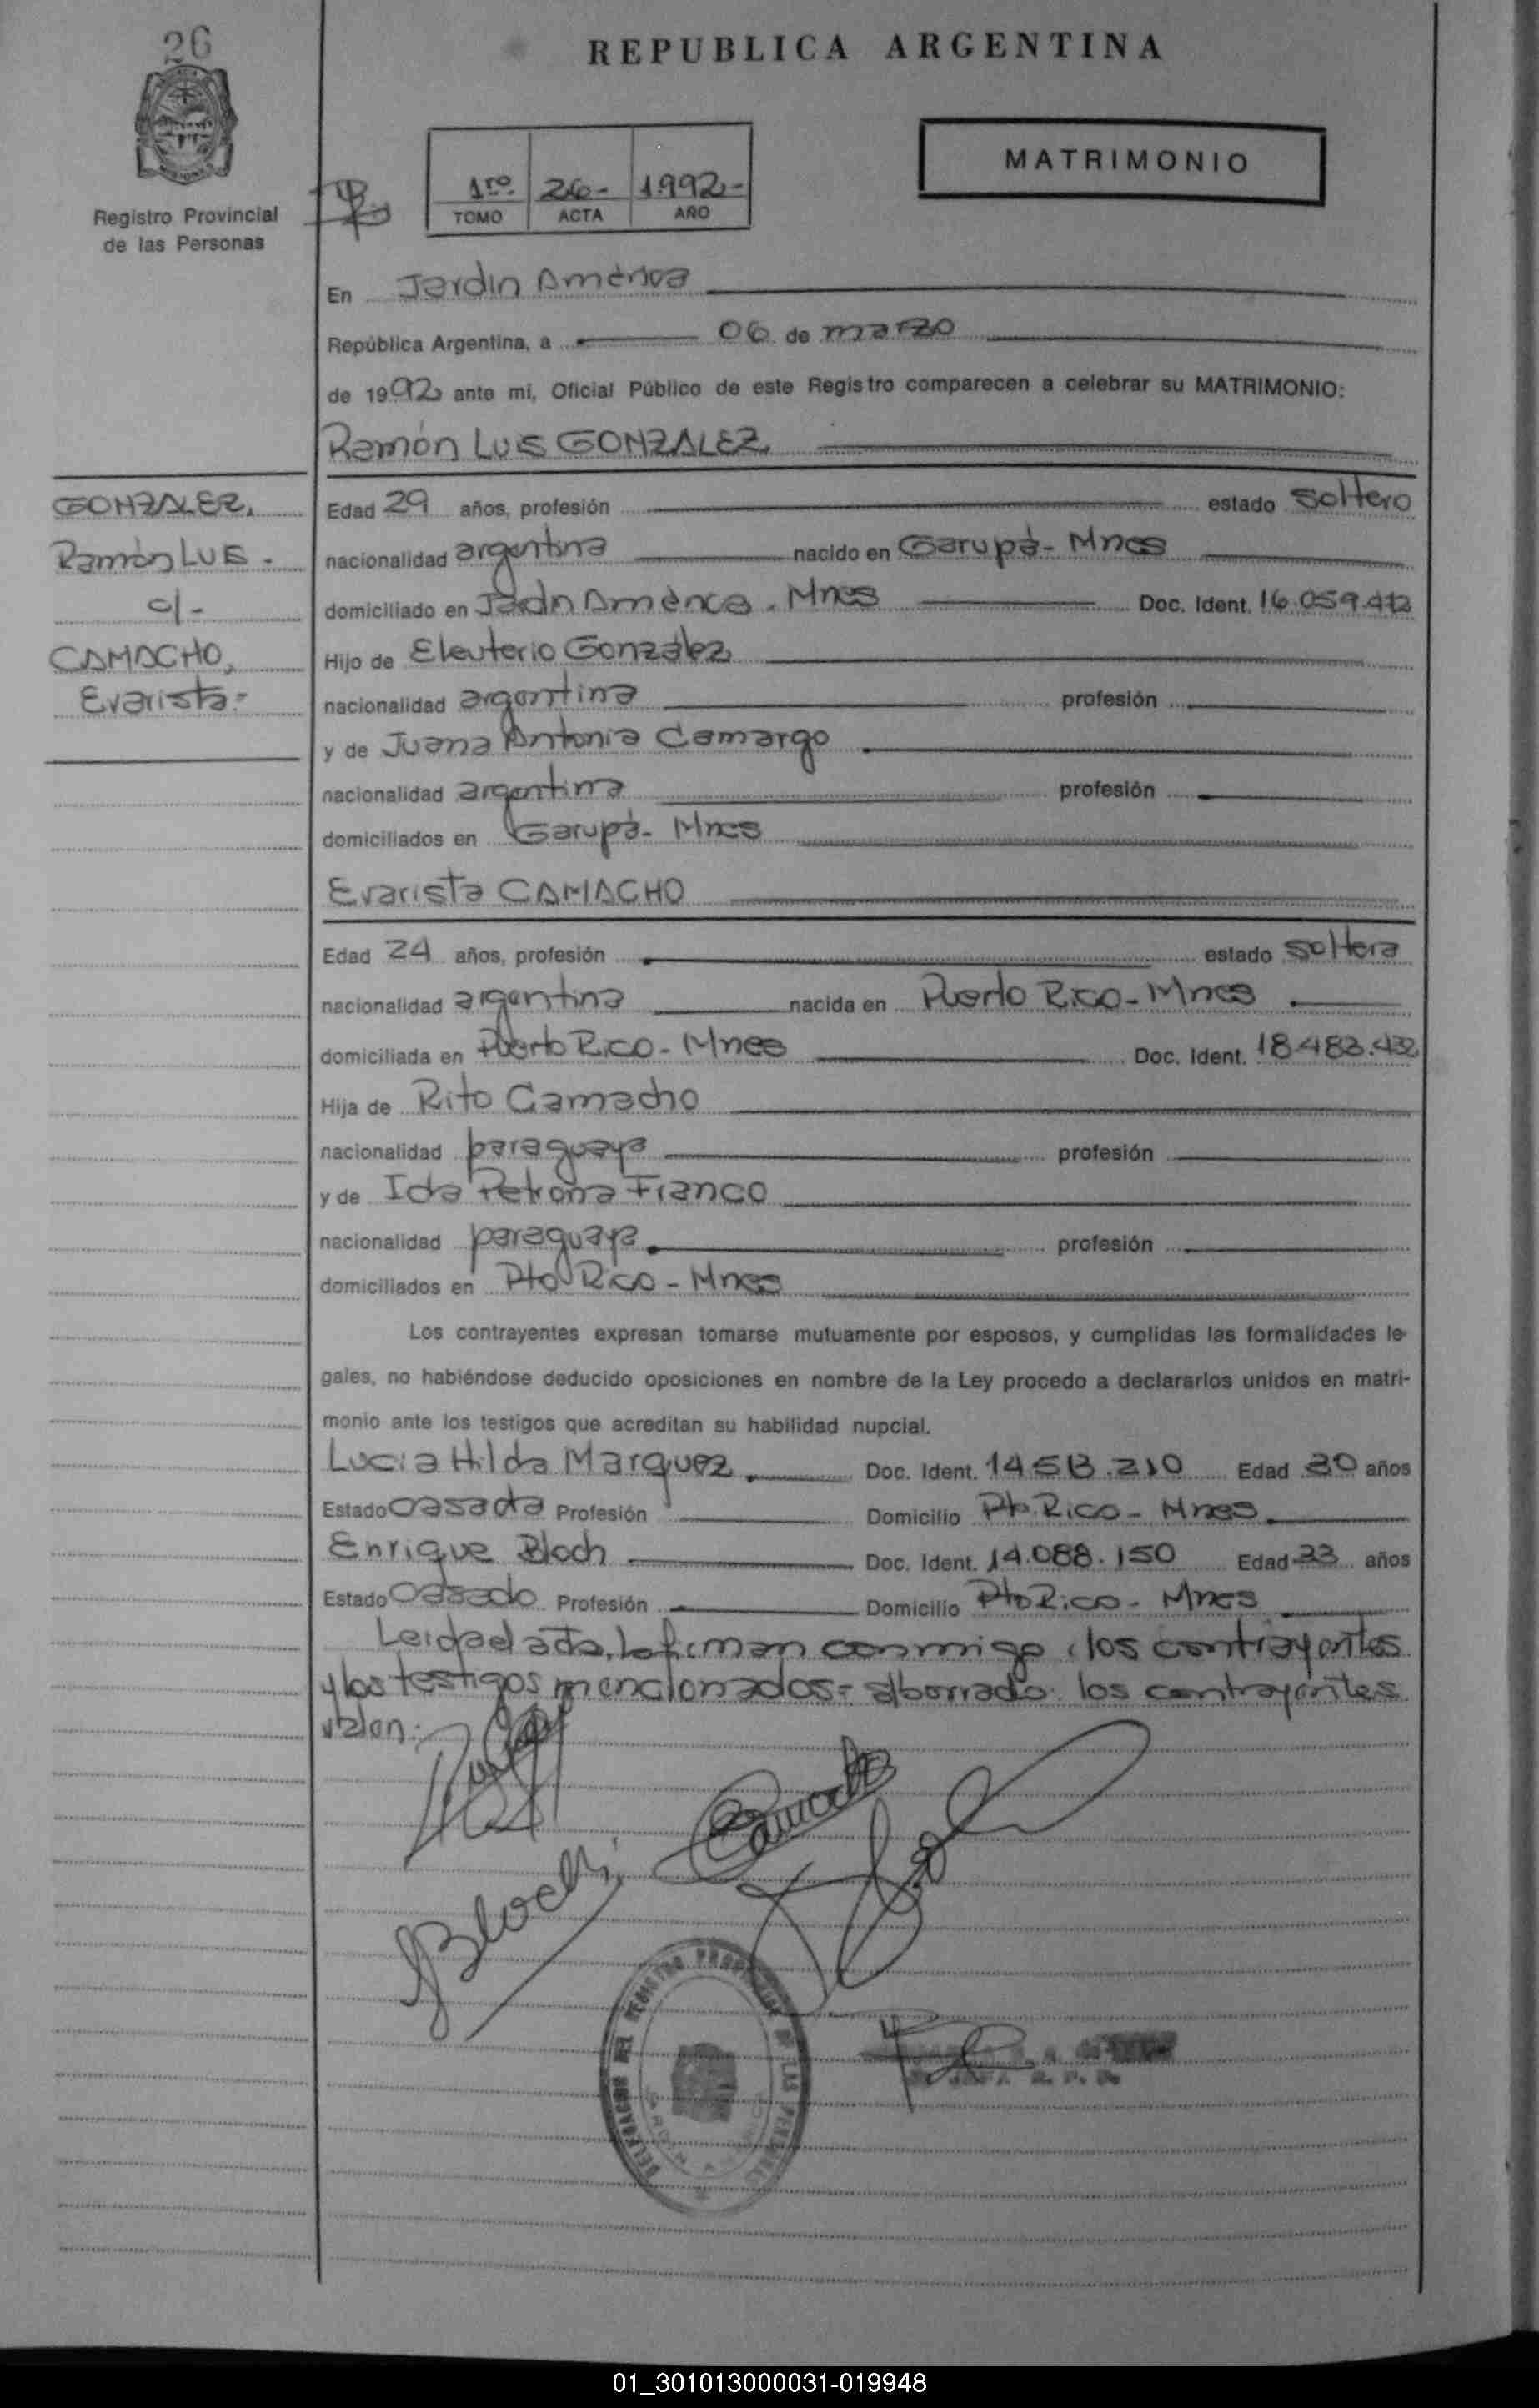 26
REPUBLICA ARGENTINA
MATRIMONIO
1ro. 26- 1.992-
TOMO ACTA AÑO
Registro Provincial
de las Personas
En Jardín América
República Argentina, a 06 de marzo
de 1992 ante mí, Oficial Público de este Registro comparecen a celebrar su MATRIMONIO:
Ramón Luis GONZALEZ
GONZALEZ,
Ramón Luis -
c/-
CAMACHO,
Evarista.-
Edad 29 años, profesión estado soltero
nacionalidad argentina nacido en Garupá - Mnes
domiciliado en Jardín América. Mnes Doc. Ident. 16.059.412
Hijo de Eleuterio González
nacionalidad argentina profesión
y de Juana Antonia Camargo
nacionalidad argentina profesión
domiciliados en Garupá - Mnes
Evarista CAMACHO
Edad 24 años, profesión estado soltera
nacionalidad argentina nacida en Puerto Rico - Mnes
domiciliada en Puerto Rico - Mnes Doc. Ident. 18.483.432
Hija de Rito Camacho
nacionalidad paraguaya profesión
y de Ida Petrona Franco
nacionalidad paraguaya profesión
domiciliados en Pto Rico - Mnes
Los contrayentes expresan tomarse mutuamente por esposos, y cumplidas las formalidades le-
gales, no habiéndose deducido oposiciones en nombre de la Ley procedo a declararlos unidos en matri-
monio ante los testigos que acreditan su habilidad nupcial.
Lucia Hilda Marquez Doc. Ident. 14.513.210 Edad 30 años
Estado casada Profesión Domicilio Pto. Rico - Mnes
Enrique Bloch Doc. Ident. 14.088.150 Edad 33 años
Estado casado Profesión Domicilio Pto Rico - Mnes
Leida el acta, la firman conmigo, los contrayentes
y los testigos mencionados- s/borrado: los contrayentes
valen.-
Camacho
Bloch
DELEGACION DEL REGISTRO PROVINCIAL DE LAS PERSONAS
JARDIN AMERICA
01_301013000031-019948